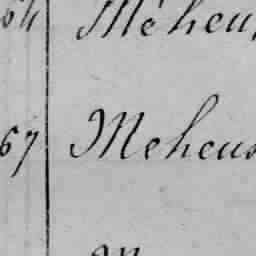 64 Méheu
67 Meheus